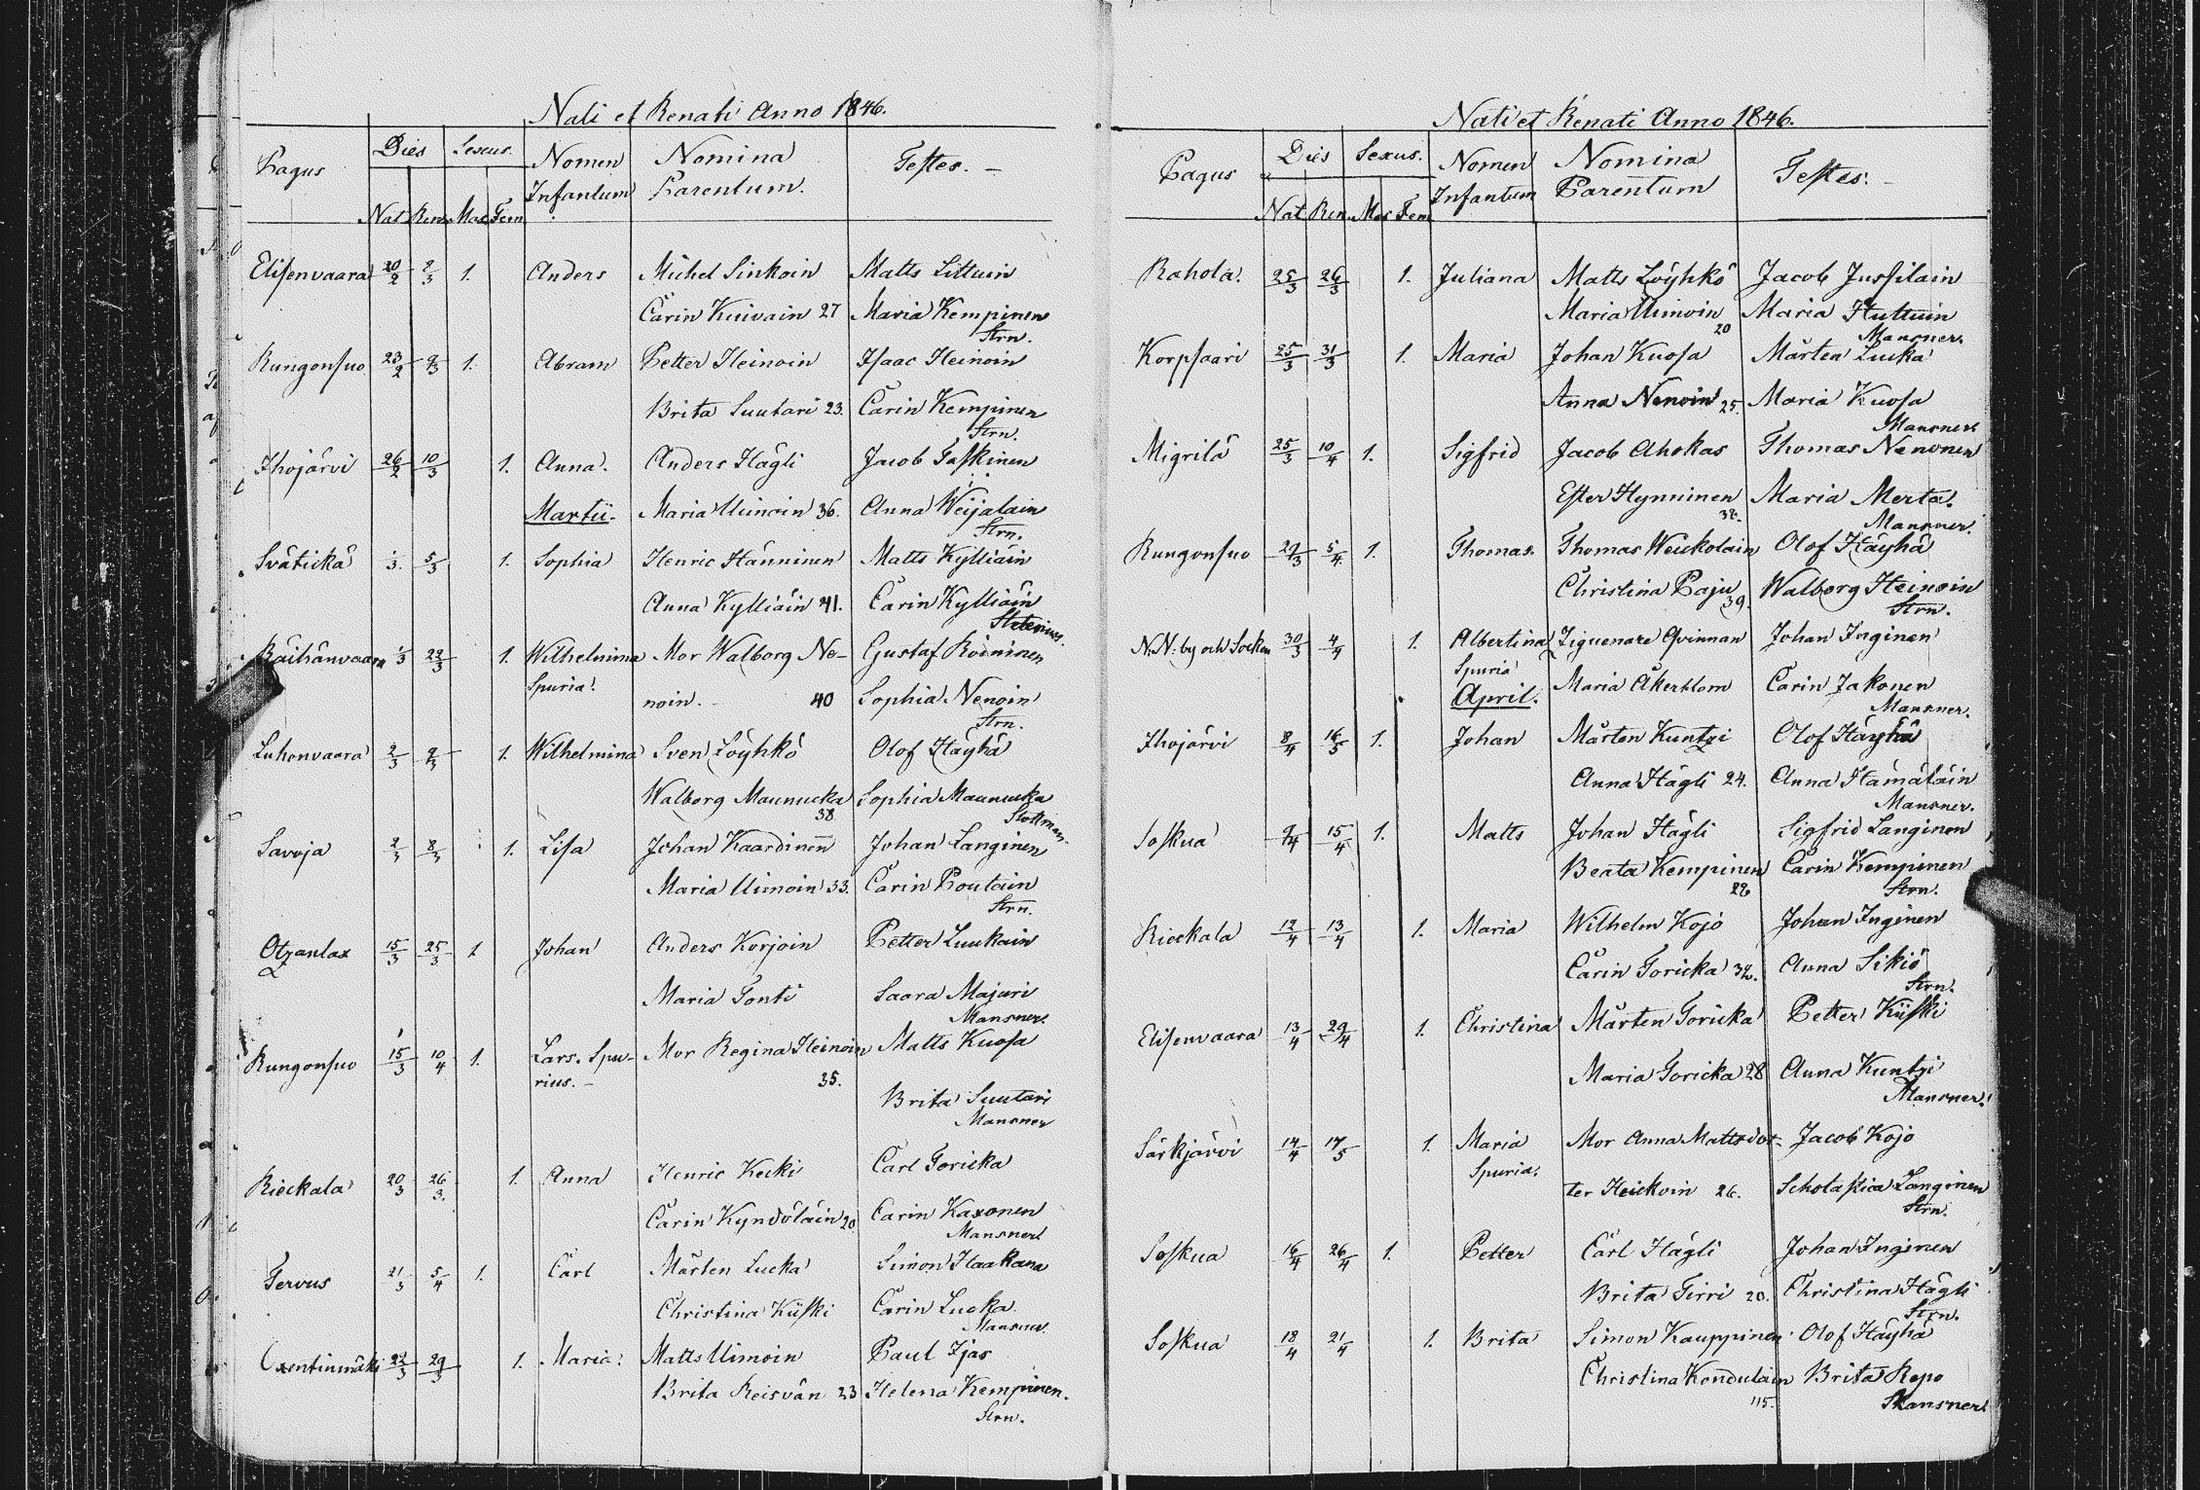 Nati et Renati Anno 1846.
Pagus Dies Sexus. Nomen Infantum Nomina Parentum. Testes. –
Nat. Ren. Mas. Fem.
Elisenvaara 20/2 8/3 1. Anders Michel Sinkoin Matts Littuin
Carin Kuivain 27 Maria Kempinen
Strn.
Rungonsuo 23/2 9/3 1. Abram Petter Heinoin Isaac Heinoin
Brita Suutari 23. Carin Kempinen
Strn.
Ihojärvi 26/2 10/3 1. Anna. Anders Hägli Jacob Taskinen
Martii. Maria Uimoin 36. Anna Weijalain
Strn.
Svätickä 1/3. 5/3 1. Sophia Henric Hänninen Matts Kylliäin
Anna Kylliäin 41. Carin Kylliäin
Räihänvaara 1/3 22/3 1. Wilhelmina Mor Walborg Ne- Gustaf Roininen
Spuria. noin. – 40 Sophia Nenoin
Strn.
Luhonvaara 2/3 9/3 1. Wilhelmina Sven Löyhkö Olof Häyhä
Walborg Maunucka Sophia Maunucka
38
Savoja 2/3 8/3 1. Lisa Johan Kaardinen Johan Langinen
Maria Uimoin 33. Carin Poutain
Strn.
Otzanlax 15/3 25/3 1 Johan Anders Korjoin Petter Luukain
Maria Tonti Saara Majuri
Mansner.
Rungonsuo 15/3 10/4 1. Lars. Spu- Mor Regina Heinoin Matts Kuosa
rius. – 35.
Brita Suutari
Mansner
Rieckala 20/3 26/3. 1. Anna Henric Kecki Carl Toricka
Carin Kyndöläin 20 Carin Kaxonen
Mansner
Tervus 21/3 5/4 1. Carl Mårten Lucka Simon Haakana
Christina Kiiski Carin Lucka
Mansner.
Oxentinmäki 22/3 29/3 1. Maria. Matts Uimoin Paul Ijas
Brita Reisvän 23 Helena Kempinen.
Strn.
Nati et Renati Anno 1846.
Pagus Dies Sexus. Nomen Infantum Nomina Parentum Testes. –
Nat Ren. Mas Fem
Rahola. 25/3 26/3 1. Juliana Matts Löyhkö Jacob Jussilain
Maria Uimoin Maria Huttuin
20 Mansner.
Korpsaari 25/3 31/3 1. Maria Johan Kuosa Mårten Lucka
Anna Nenoin 25. Maria Kuosa
Mansner
Migrilä 25/3 10/4 1. Sigfrid Jacob Ahokas Thomas Nenonen
Ester Hynninen Maria Merta.
38. Mansner.
Rungonsuo 29/3 5/4. 1. Thomas. Thomas Weickolain Olof Häyhä
Christina Paju Walborg Heinoin
39. Strn.
N.N: by och Socken 30/3 4/4 1. Albertina Ziguenare Qvinnan Johan Inginen
Spuria Maria Åkerblom Carin Jakonen
April. Mansner.
Ihojärvi 8/4 16/5 1. Johan Mårten Kuntzi Olof Häyhä
Anna Hägli 24. Anna Hämäläin
Mansner.
Soskua 9/4 15/4 1. Matts Johan Hägli Sigfrid Langinen
Beata Kempinen Carin Kempinen
28 Strn.
Rieckala 12/4 13/4 1. Maria Wilhelm Kojo Johan Inginen
Carin Toricka 32. Anna Sikiö
Strn.
Elisenvaara 13/4 29/4 1. Christina Mårten Toricka Petter Kiiski
Maria Toricka 28 Anna Kuntzi
Mansner.
Särkjärvi 14/4 17/5 1. Maria Mor Anna Mattsdot- Jacob Kojo
Spuria. ter Heickoin 26. Scholastica Langinen
Strn.
Soskua 16/4 26/4 1. Petter Carl Hägli Johan Inginen
Brita Tirri 20. Christina Hägli
Strn.
Soskua 18/4 21/4 1. Brita Simon Kauppinen Olof Häyhä
Christina Kondulain Brita Repo
Mansner